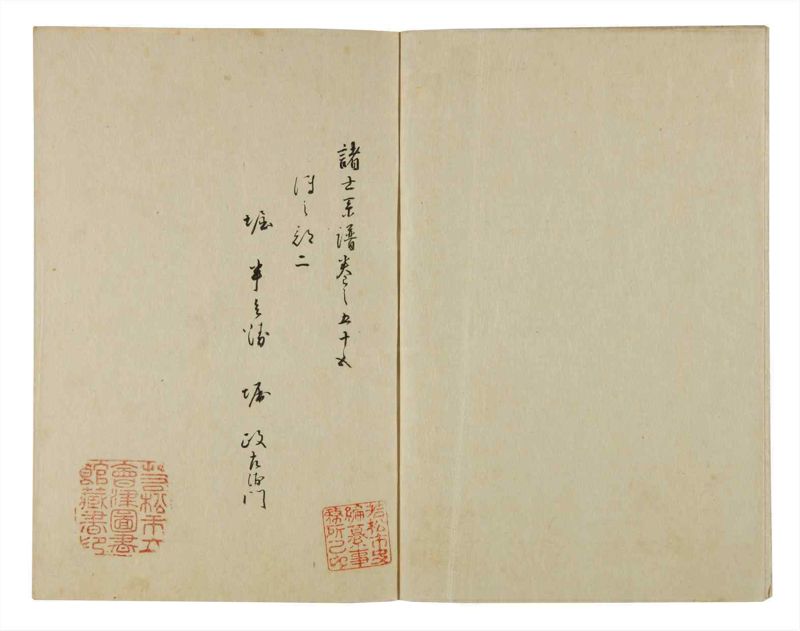 諸士系譜巻之五十五
之部二
堀 半之 堀 政右衛門
若松市立
會津圖書
館藏書印
若松市史
編纂事
務所之印